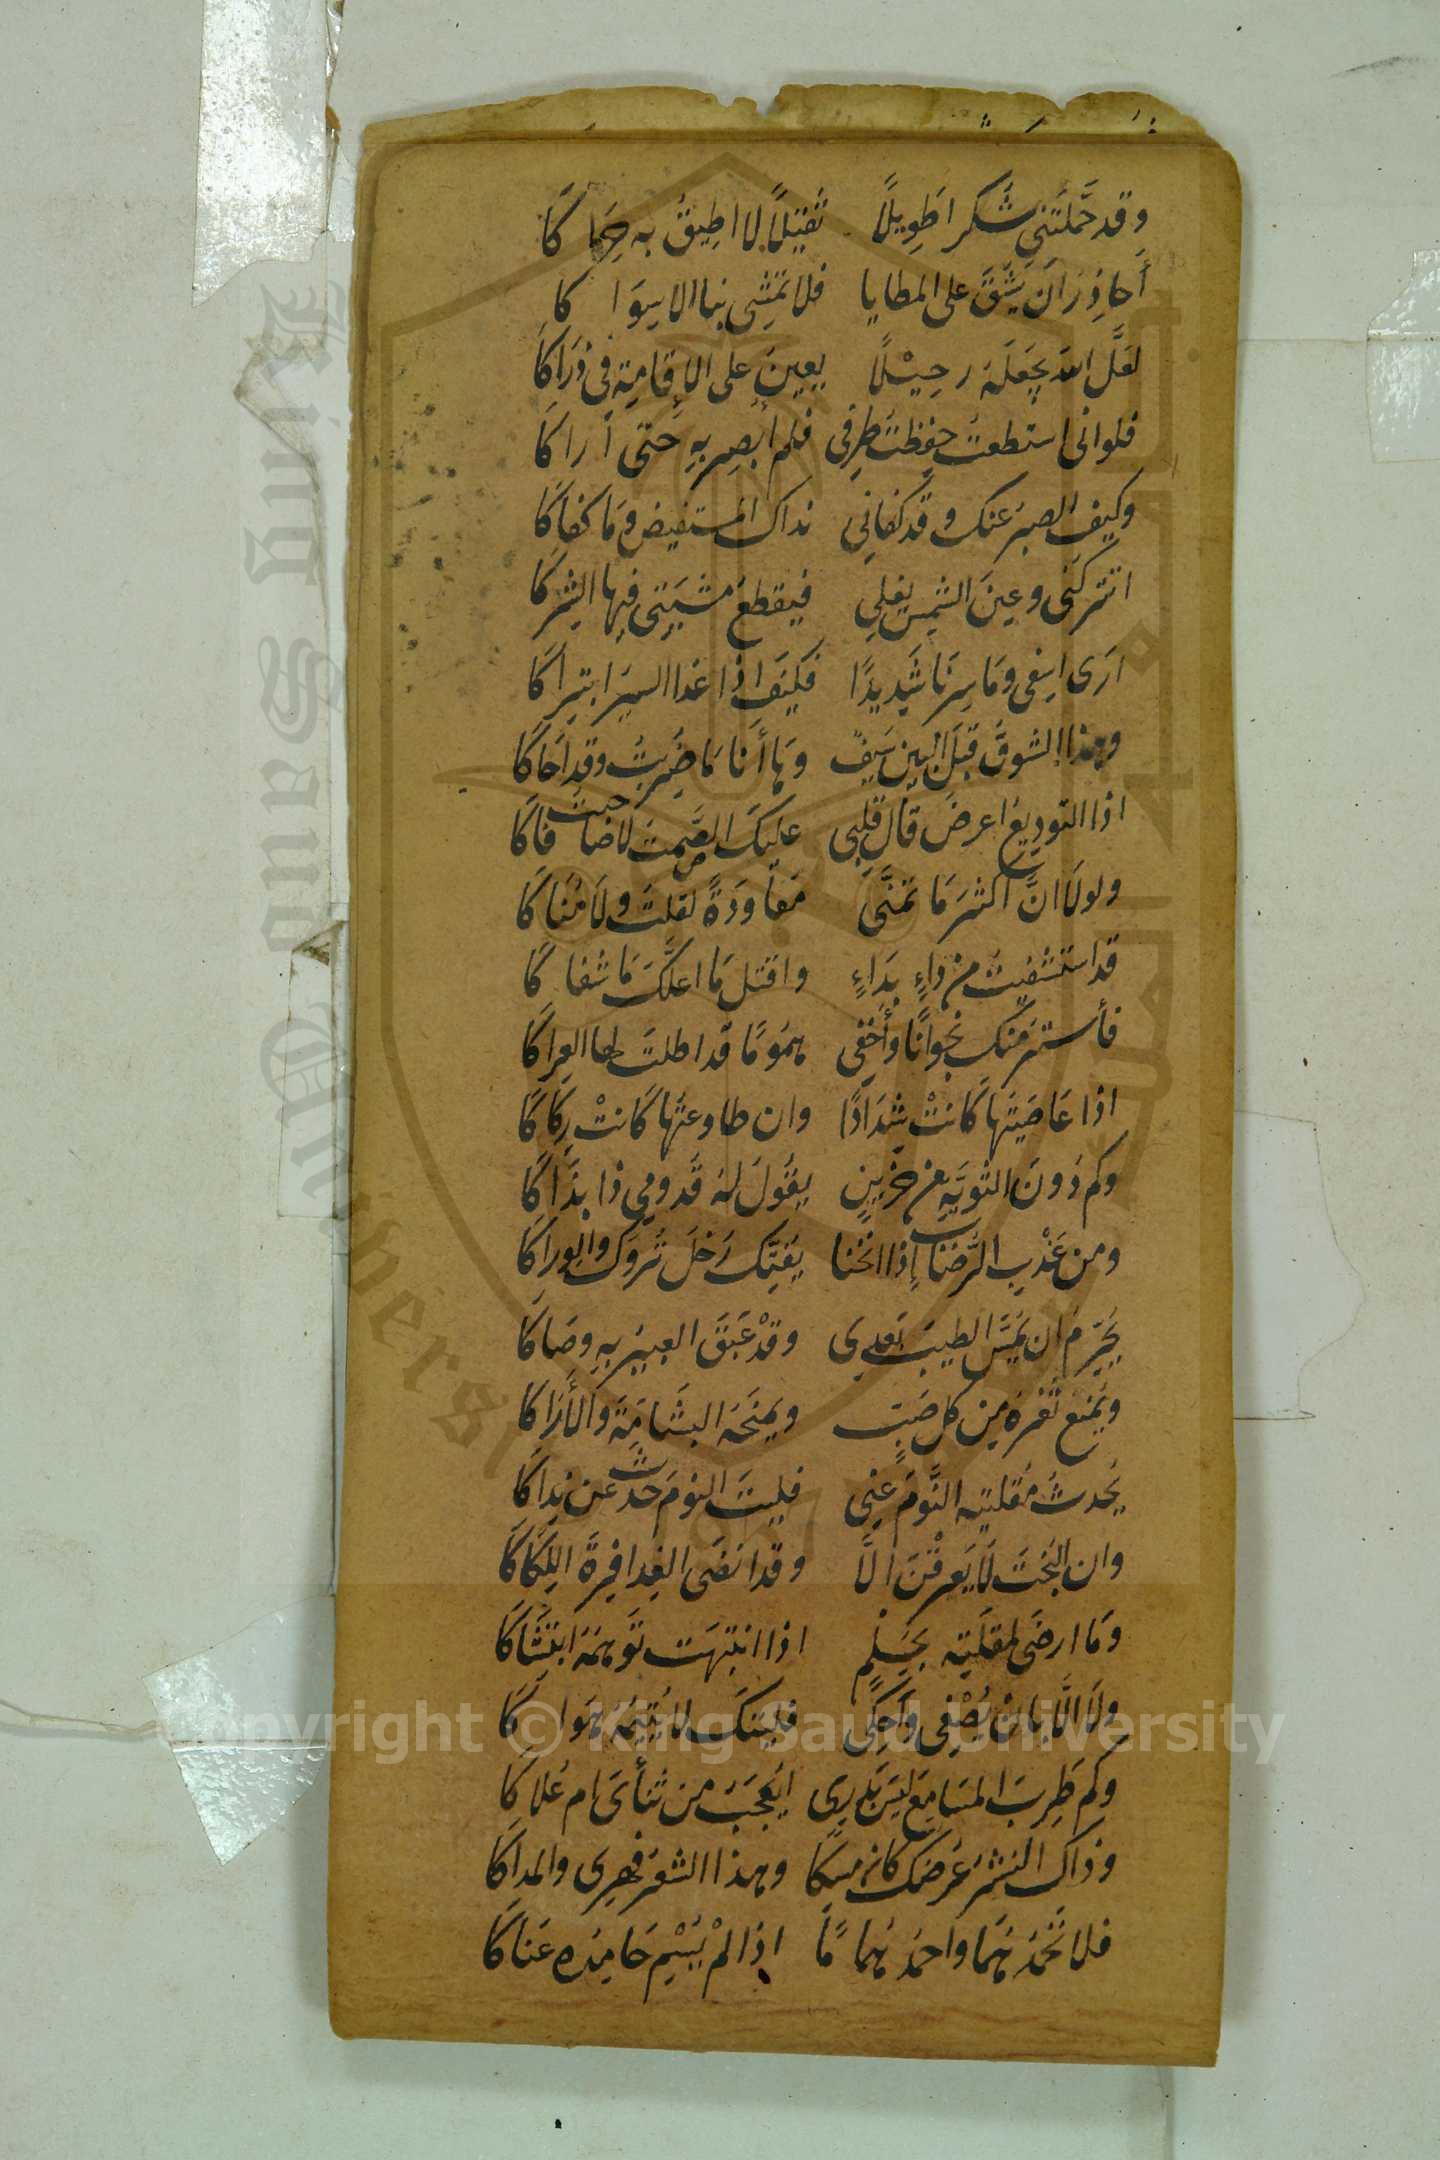 وقد حَمَّلتَني شكرا طَوِيلًا ثقيلًا لا اطيقُ به حِراكا
أُحاذِرُ ان يَشُقَّ على المطايا فلا تَمشِى بنا الا سِوَاكا
لعَلَّ الله يجعَلَهُ رحِيْلًا يعِين على الإقامة في ذَرَاكا
فلو انى استطعتُ حفِظتُ طرفى فلم أُبْصِر بهِ حتى أراكا
وكيف الصبرُ عنك وقد كفاني نداك المستفيض وما كفاكا
اتتركنى وعينَ الشمس نعلي فيقطعَ مشيَتِى فيها الشِراكا
ارَى اسِفى ومَا سِرنا شَدِيدًا فكيَفَ اذا غدا السيرَ ابتراكا
وهذا الشوقُ قبلَ البين سَيفٌ وها أنا مَا ضربتُ وقد احَاكا
اذا التوديعُ اعرضَ قال قلبى عليكَ الصَّمتَ لا صاحبتَ فاكا
ولولَا انَّ اكثرَ مَا تمنَّى مَعاوَدَةً لقلتَ ولَا مُنَاكا
قد استشفيتَ من داءٍ بدَاءٍ واقتل مَا اعلَّكَ مَا شفاكا
فأستر منك نجوانا وأُخفِي همُومًا قد اطلتَ لها العِراكا
اذا عَاصَيتَها كانتْ شِدَادًا وان طاوعتَها كانتْ رِكاكا
وكم دُونَ الثَّوِيَّةِ من حَزِينٍ يقُولُ لهُ قَدومِي ذا بذَاكا
ومن عَذْبِ الرُّضابِ إذا انخنا يُقَبِّل رَحلَ تُروَكَ والوِراكا
يُحَرِّمُ ان يَمَسَّ الطيبَ بعدِى وقدْ عَبقَ العبيرُ بهِ وصَاكا
ويَمنع ثَغْرَهُ مِن كل صَبٍّ ويمنَحُه البشَامَةَ والأَرَاكا
يُحدثُ مُقلتيه النَّومُ عنِى فليتَ النومَ حدثَ عن نِداكا
وان البُختَ لا يَعرِقْنَ الَّا وقد انضَى العِذافِرةَ اللِكاكا
ومَا ارضَى لمقلَتِه بحُلْمٍ اذا انتبَهَت توَهمَهُ ابتشَاكا
ولَا الَّا بان يُصْغِى واَحكِى فليتَكَ لا يُتَيِّمُهُ هَواكا
وكم طَرِبَ المسَامِعَ لَيسَ يَدرِى ايَعجَبُ من ثَنأَى ام عُلاكا
وذاكَ النشرُ عُرضكَ كان مِسكا وهذا الشعرُ فِهرِى والمداكا
فلا تَحْمَدْهُمَا واحمدْ هُمَامًا اذا لمْ يُسَمِّ حَامِدُه عَنَاكا